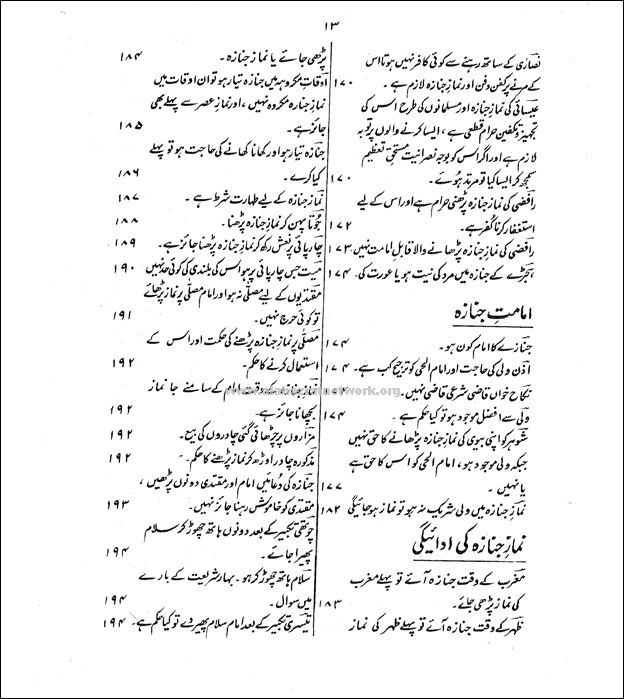 ۱۳
نصارٰی کے ساتھ رہنے سے کوئی کافر نہیں ہوتا اس
کے مرنے پر کفن دفن اور نمازِ جنازہ لازم ہے ۔ ۱۷۰
عیسائی کی نمازِ جنازہ اور مسلمانوں کی طرح اس کی
تجہیز و تکفین حرام قطعی ہے ، ایسا کرنے والوں پر توبہ
لازم ہے اور اگر اس کو بوجہ نصرانیت مستحقِ تعظیم
سمجھ کر ایسا کیا تو مرتد ہوئے ۔ ۱۷۰
رافضی کی نمازِ جنازہ پڑھنی حرام ہے اور اس کے لیے
استغفار کرنا کفر ہے ۔ ۱۷۲
رافضی کی نمازِ جنازہ پڑھانے والا قابلِ امامت نہیں ۔ ۱۷۳
ہیجڑے کے جنازہ میں مرد کی نیت ہو یا عورت کی ۔ ۱۷۴
امامتِ جنازہ
جنازے کا امام کون ہو ۔ ۱۷۴
اذنِ ولی کی حاجت اور امام الحی کو ترجیح کب ہے ۔ ۱۷۴
نکاح خواں قاضی شرعی قاضی نہیں ۔ ۱۷۴
ولی سے افضل موجود ہو تو کیا حکم ہے ۔ ۱۷۴
شوہر کو اپنی بیوی کی نمازِ جنازہ پڑھانے کا حق نہیں
جبکہ ولی موجود ہو ، امام الحی کو اس کا حق ہے
یا نہیں ۔ ۱۷۷
نمازِ جنازہ میں ولی شریک نہ ہو تو نماز ہو جائیگی ۱۸۲
نمازِ جنازہ کی ادائیگی
مغرب کے وقت جنازہ آئے تو پہلے مغرب
کی نماز پڑھی جائے ۔ ۱۸۳
ظہر کے وقت جنازہ آئے تو پہلے ظہر کی نماز
پڑھی جائے یا نمازِ جنازہ ۔ ۱۸۴
اوقاتِ مکروہہ میں جنازہ تیار ہو تو ان اوقات میں
نمازِ جنازہ مکروہ نہیں ، اور نمازِ عصر سے پہلے بھی
جائز ہے ۔ ۱۸۵
جنازہ تیار ہو اور کھانا کھانے کی حاجت ہو تو پہلے
کیا کرے ۔ ۱۸۶
نمازِ جنازہ کے لیے طہارت شرط ہے ۔ ۱۸۷
جُوتا پہن کر نمازِ جنازہ پڑھنا ۔ ۱۸۸
چارپائی پر نعش رکھ کر نمازِ جنازہ پڑھنا جائز ہے ۔ ۱۸۹
میت جس چارپائی پر ہو اس کی بلندی کی کوئی حد نہیں ۱۹۰
مقتدیوں کے لیے مصلّٰی نہ ہو اور امام مصلّٰی پر نماز پڑھائے
تو کوئی حرج نہیں ۔ ۱۹۱
مصلّٰی پر نمازِ جنازہ پڑھنے کی حکمت اور اس کے
استعمال کرنے کا حکم ۔ ۱۹۲
نمازِ جنازہ کے وقت امام کے سامنے جانماز
بچھانا جائز ہے ۔ ۱۹۲
مزاروں پر چڑھائی گئی چادروں کی بیع ۔ ۱۹۲
مذکورہ چادر اوڑھ کر نماز پڑھنے کا حکم ۔ ۱۹۲
جنازہ کی دُعائیں امام اور مقتدی دونوں پڑھیں ،
مقتدی کو خاموش رہنا جائز نہیں ۔ ۱۹۳
چوتھی تکبیر کے بعد دونوں ہاتھ چھوڑ کر سلام
پھیرا جائے ۔ ۱۹۴
سلام ہاتھ چھوڑ کر ہو ۔ بہارِ شریعت کے بارے
میں سوال ۔ ۱۹۴
تیسری تکبیر کے بعد امام سلام پھیر دے تو کیا حکم ہے ۔ ۱۹۴